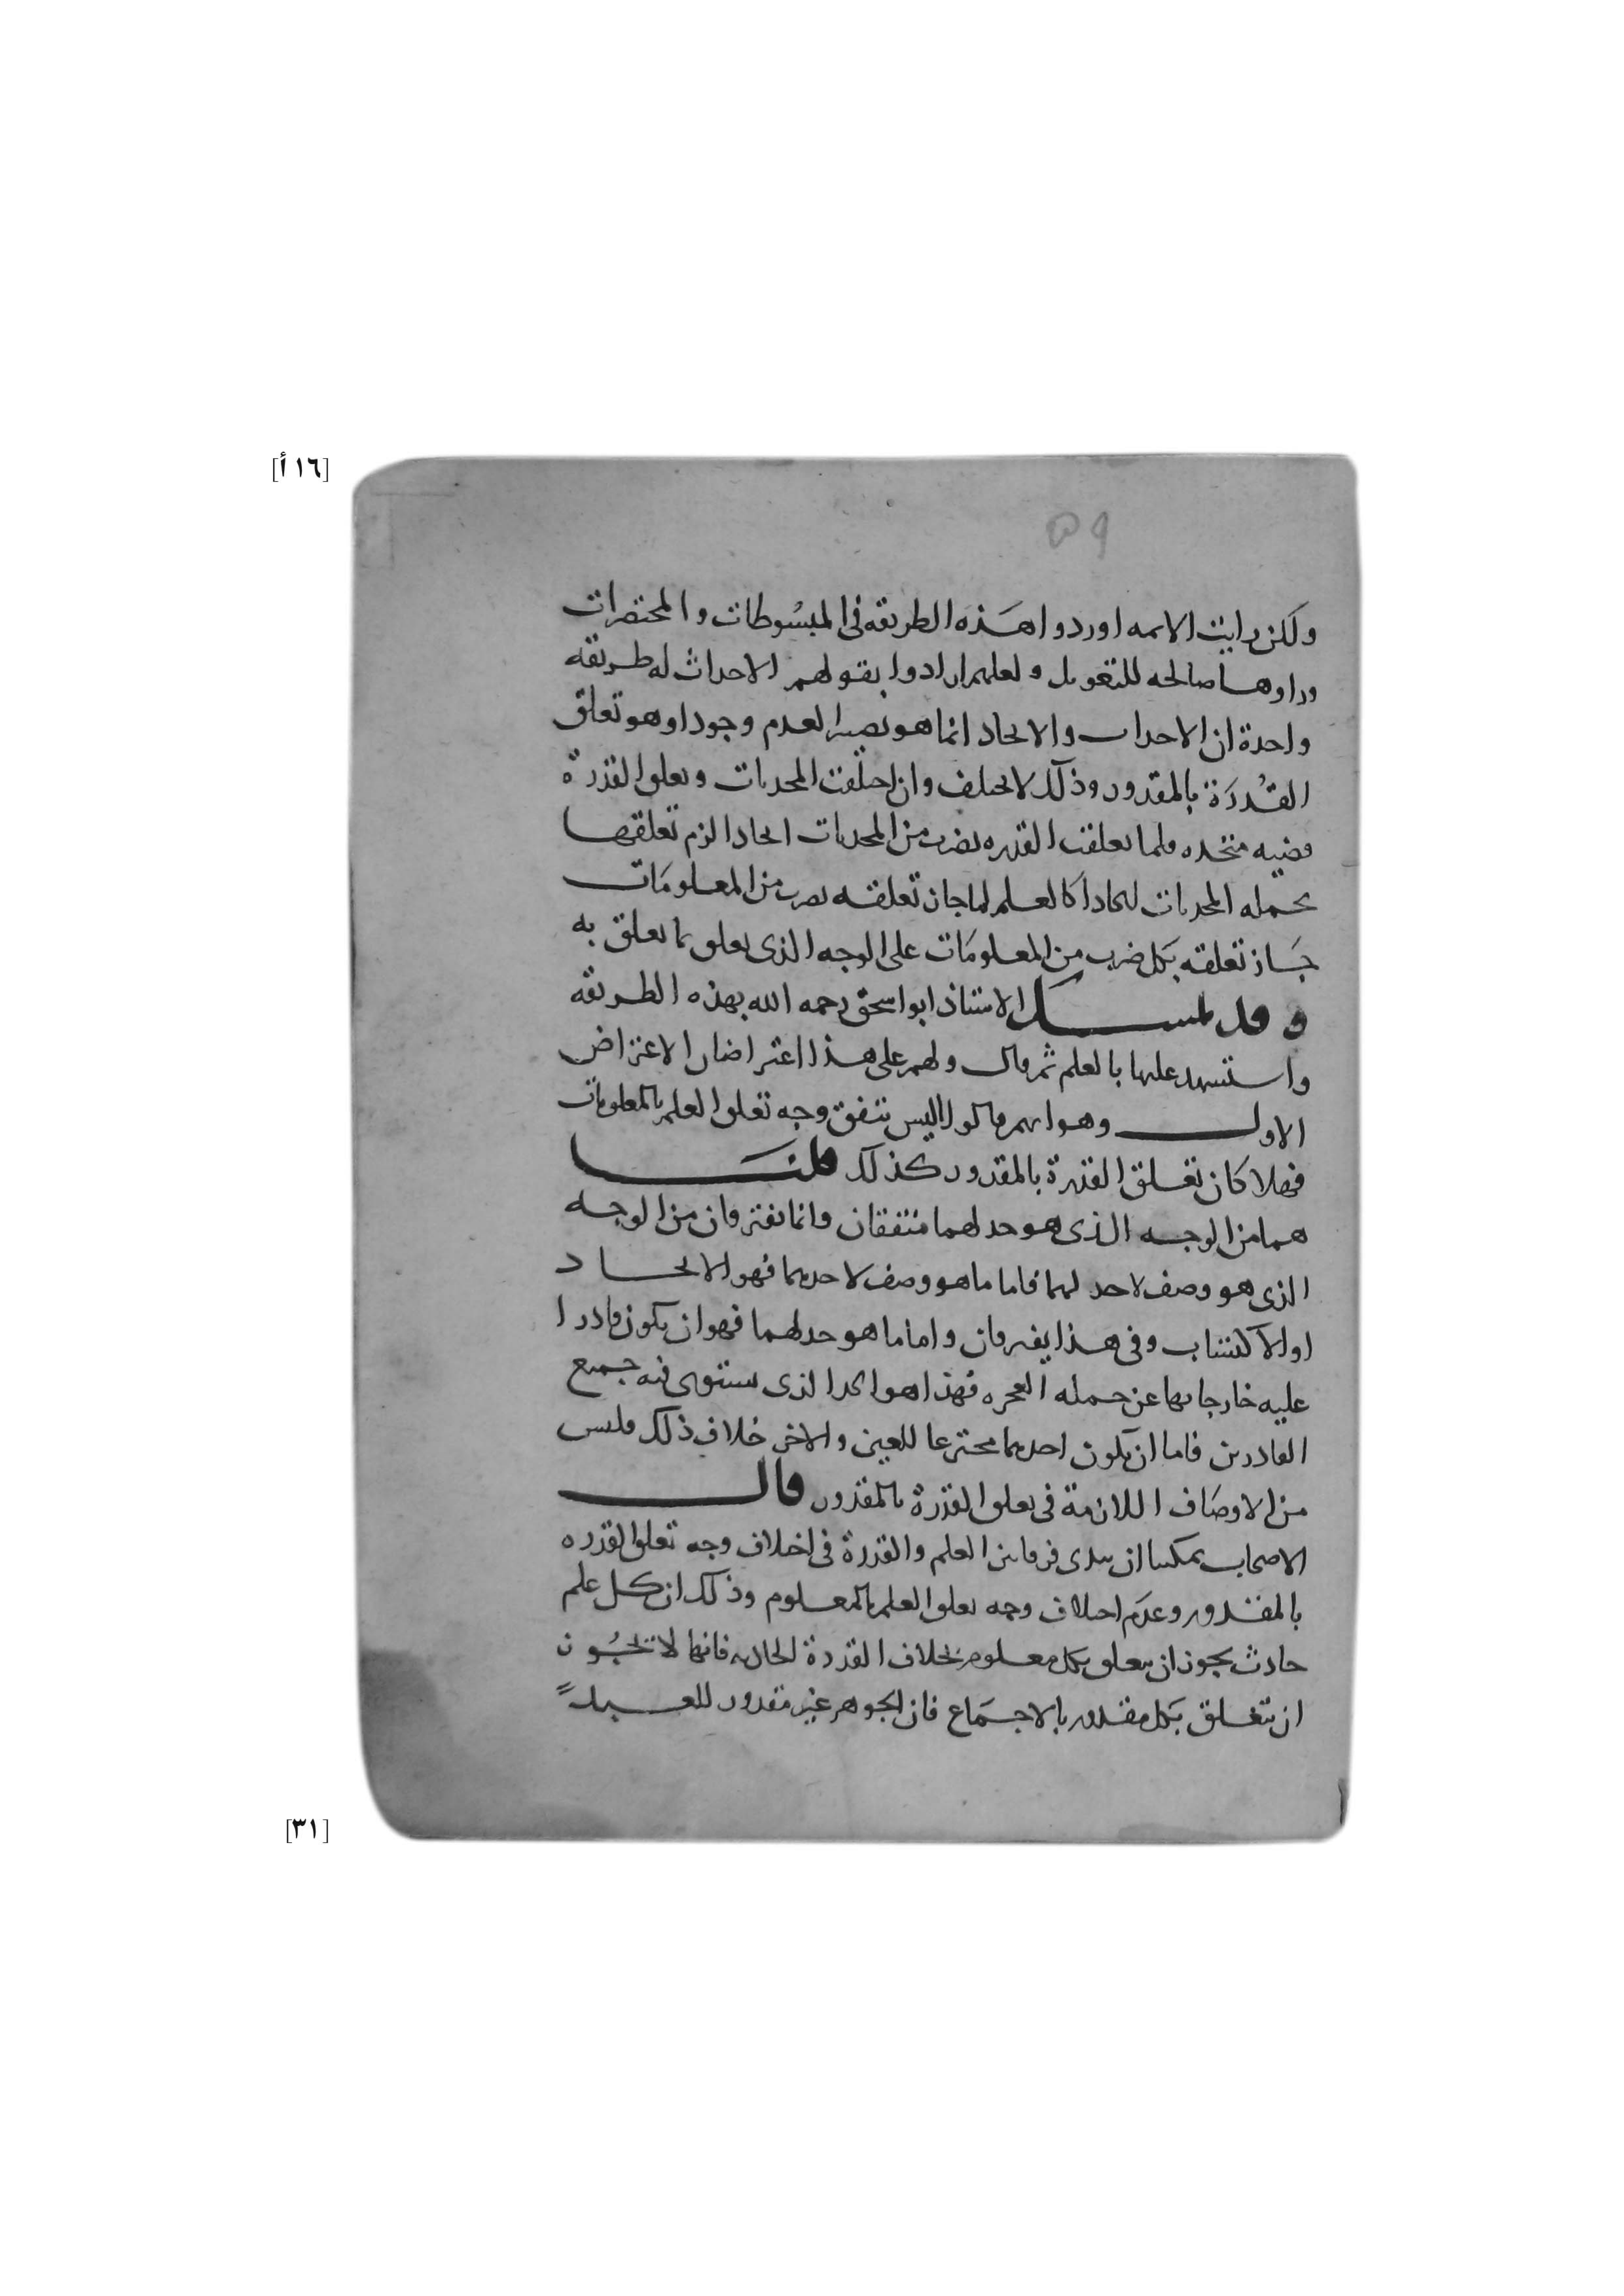 [١٦ أ]
٥٩
ولكن رايت الايمه اوردوا هذه الطريقه في المبسوطات والمختصرات
وراوها صالحه للتعويل ولعلهم ارادوا بقولهم الاحداث له طريقه
واحدة ان الاحداث والايجاد انما هو تصيير العدم وجودا وهو تعلق
القُدرَة بالمقدور وذلك لا يختلف وان اختلفت المحدثات وتعلق القدرة
قضيه متحده فلما تعلقت القدره بضرب من المحدثات ايجادا لزم تعلقها
بجمله المحدثات ايجادا كالعلم لما جاز تعلقه بضرب من المعلومَات
جَاز تعلقه بكل ضرب من المعلومَات على الوجه الذي تعلق بما تعلق به
وقد تمسك الاستاذ ابو اسحق رحمه الله بهذه الطريقه
واستشهد عليها بالعلم ثم قال ولهم على هذا اعتراضان الاعتراض
الاول وهو انهم قالوا اليس يتفق وجه تعلق العلم بالمعلومات
فهلا كان تعلق القدرة بالمقدور كذلك قلنَا
هما من الوجه الذي هو حد لهما متفقان وانما يفترقان من الوجه
الذي هو وصف لاحد لهما فاما ما هو وصف لاحدهما فهو الايجاد
او الاكتساب وفي هذا يفترقان واما ما هو حد لهما فهو ان يكون قادرا
عليه خارجا بها عن جمله العجزه فهذا هو الحد الذي يستوي فيه جميع
القادرين فاما ان يكون احدهما مخترعا للعين والاخر خلاف ذلك فليس
من الاوصَاف اللازمة في تعلق القدرة بالمقدور قال
الاصحاب يمكننا ان نبدي فرقا بين العلم والقدرة في اختلاف وجه تعلق القدره
بالمقدور وعدَم اختلاف وجه تعلق العلم بالمعلوم وذلك ان كل علم
حادث يجوز ان يتعلق بكل معلوم بخلاف القدرة الحادثه فانها لا يجُوز
ان تتعلق بكل مقدور بالاجمَاع فان الجوهر غير مقدور للعبد
[٣١]